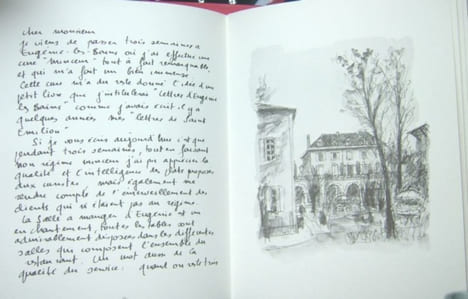 Cher monsieur
je viens de passer trois semaines à
Eugénie-les-Bains où j'ai effectué une
cure "minceur" tout à fait remarquable
et qui m'a fait un bien immense.
Cette cure m'a du reste donné l'idée d'un
petit livre que j'intitulerai "Lettres d'Eugénie
les Bains" comme j'avais écrit il y a
quelques années mes "Lettres de Saint
Emilion"
Si je vous écris aujourd'hui c'est que
pendant trois semaines, tout en faisant
mon régime minceur j'ai pu apprécier la
qualité et l'intelligence des plats proposés
aux curistes mais également me
rendre compte de l'émerveillement des
clients qui n'étaient pas au régime.
La salle à manger d'Eugénie est un
enchantement, toutes les tables sont
admirablement disposées dans les différentes
salles qui composent l'ensemble du
restaurant. Un mot aussi de la
qualité du service: quand on